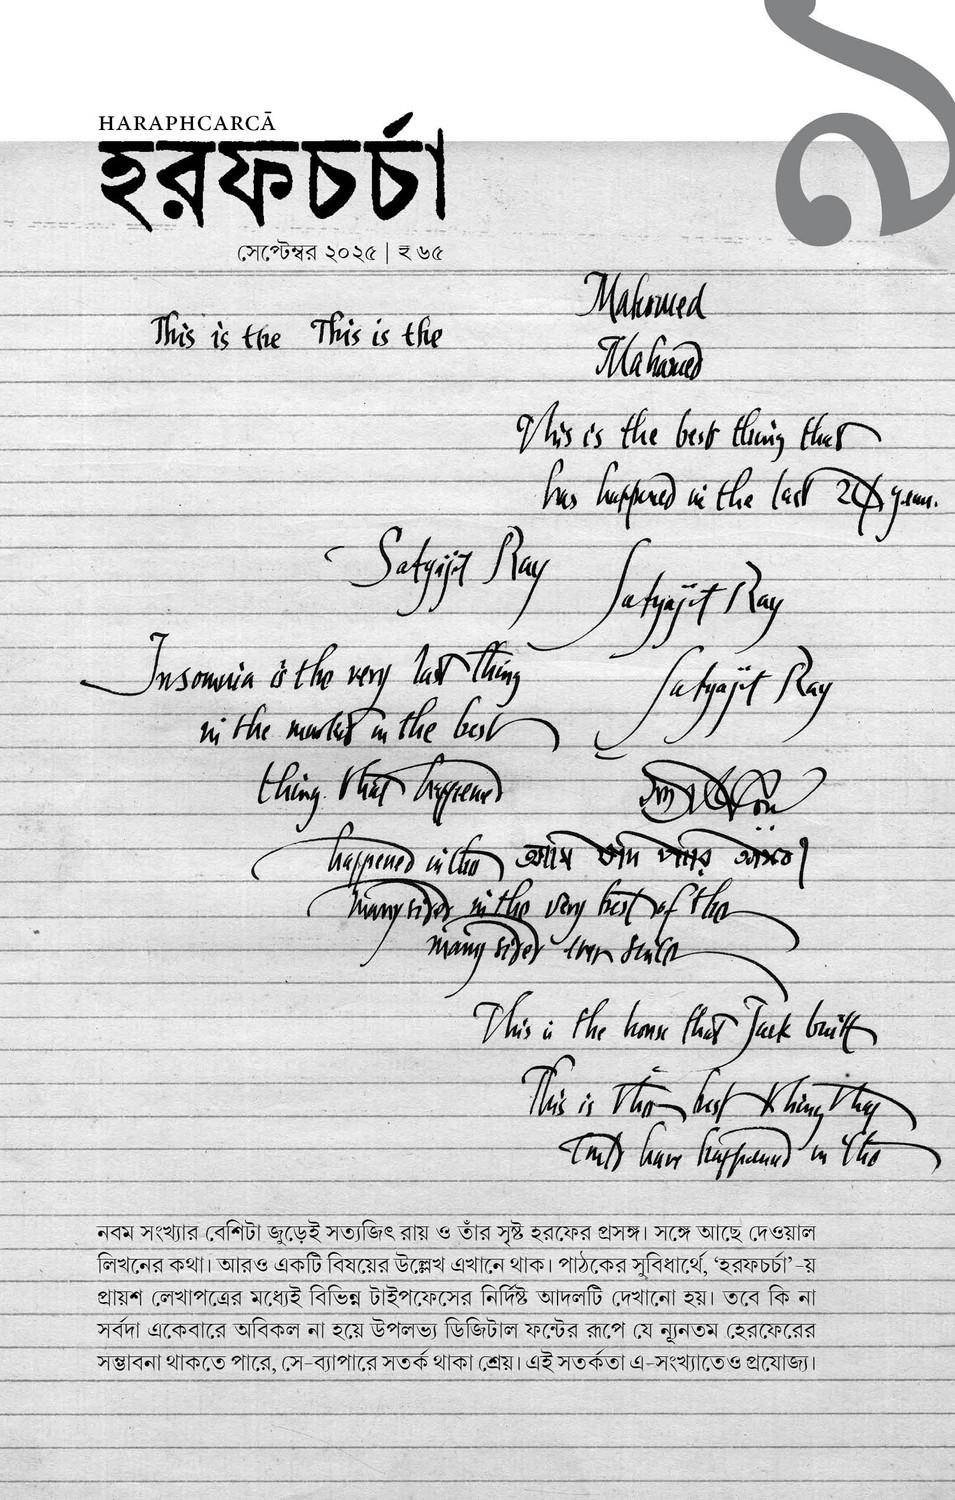 ৯
HARAPHCARCĀ
হরফচর্চা
সেপ্টেম্বর ২০২৫ | ₹ ৬৫
Mahomed
This is the This is the
Mahomed
This is the best thing that
has happened in the last years.
Satyajit Ray
Satyajit Ray
Insomnia is the very last thing
Satyajit Ray
in the market in the best
thing that happened
happened in the
আমি যদি পারি
many sided in the very best of the
many sided ever since
This is the house that Jack built
This is the best thing they
have happened in the
নবম সংখ্যার বেশিটা জুড়েই সত্যজিৎ রায় ও তাঁর সৃষ্ট হরফের প্রসঙ্গ। সঙ্গে আছে দেওয়াল
লিখনের কথা। আরও একটি বিষয়ের উল্লেখ এখানে থাক। পাঠকের সুবিধার্থে, ‘হরফচর্চা’-য়
প্রায়শ লেখাপত্রের মধ্যেই বিভিন্ন টাইপফেসের নির্দিষ্ট আদলটি দেখানো হয়। তবে কি না
সর্বদা একেবারে অবিকল না হয়ে উপলভ্য ডিজিটাল ফন্টের রূপে যে ন্যূনতম হেরফেরের
সম্ভাবনা থাকতে পারে, সে-ব্যাপারে সতর্ক থাকা শ্রেয়। এই সতর্কতা এ-সংখ্যাতেও প্রযোজ্য।